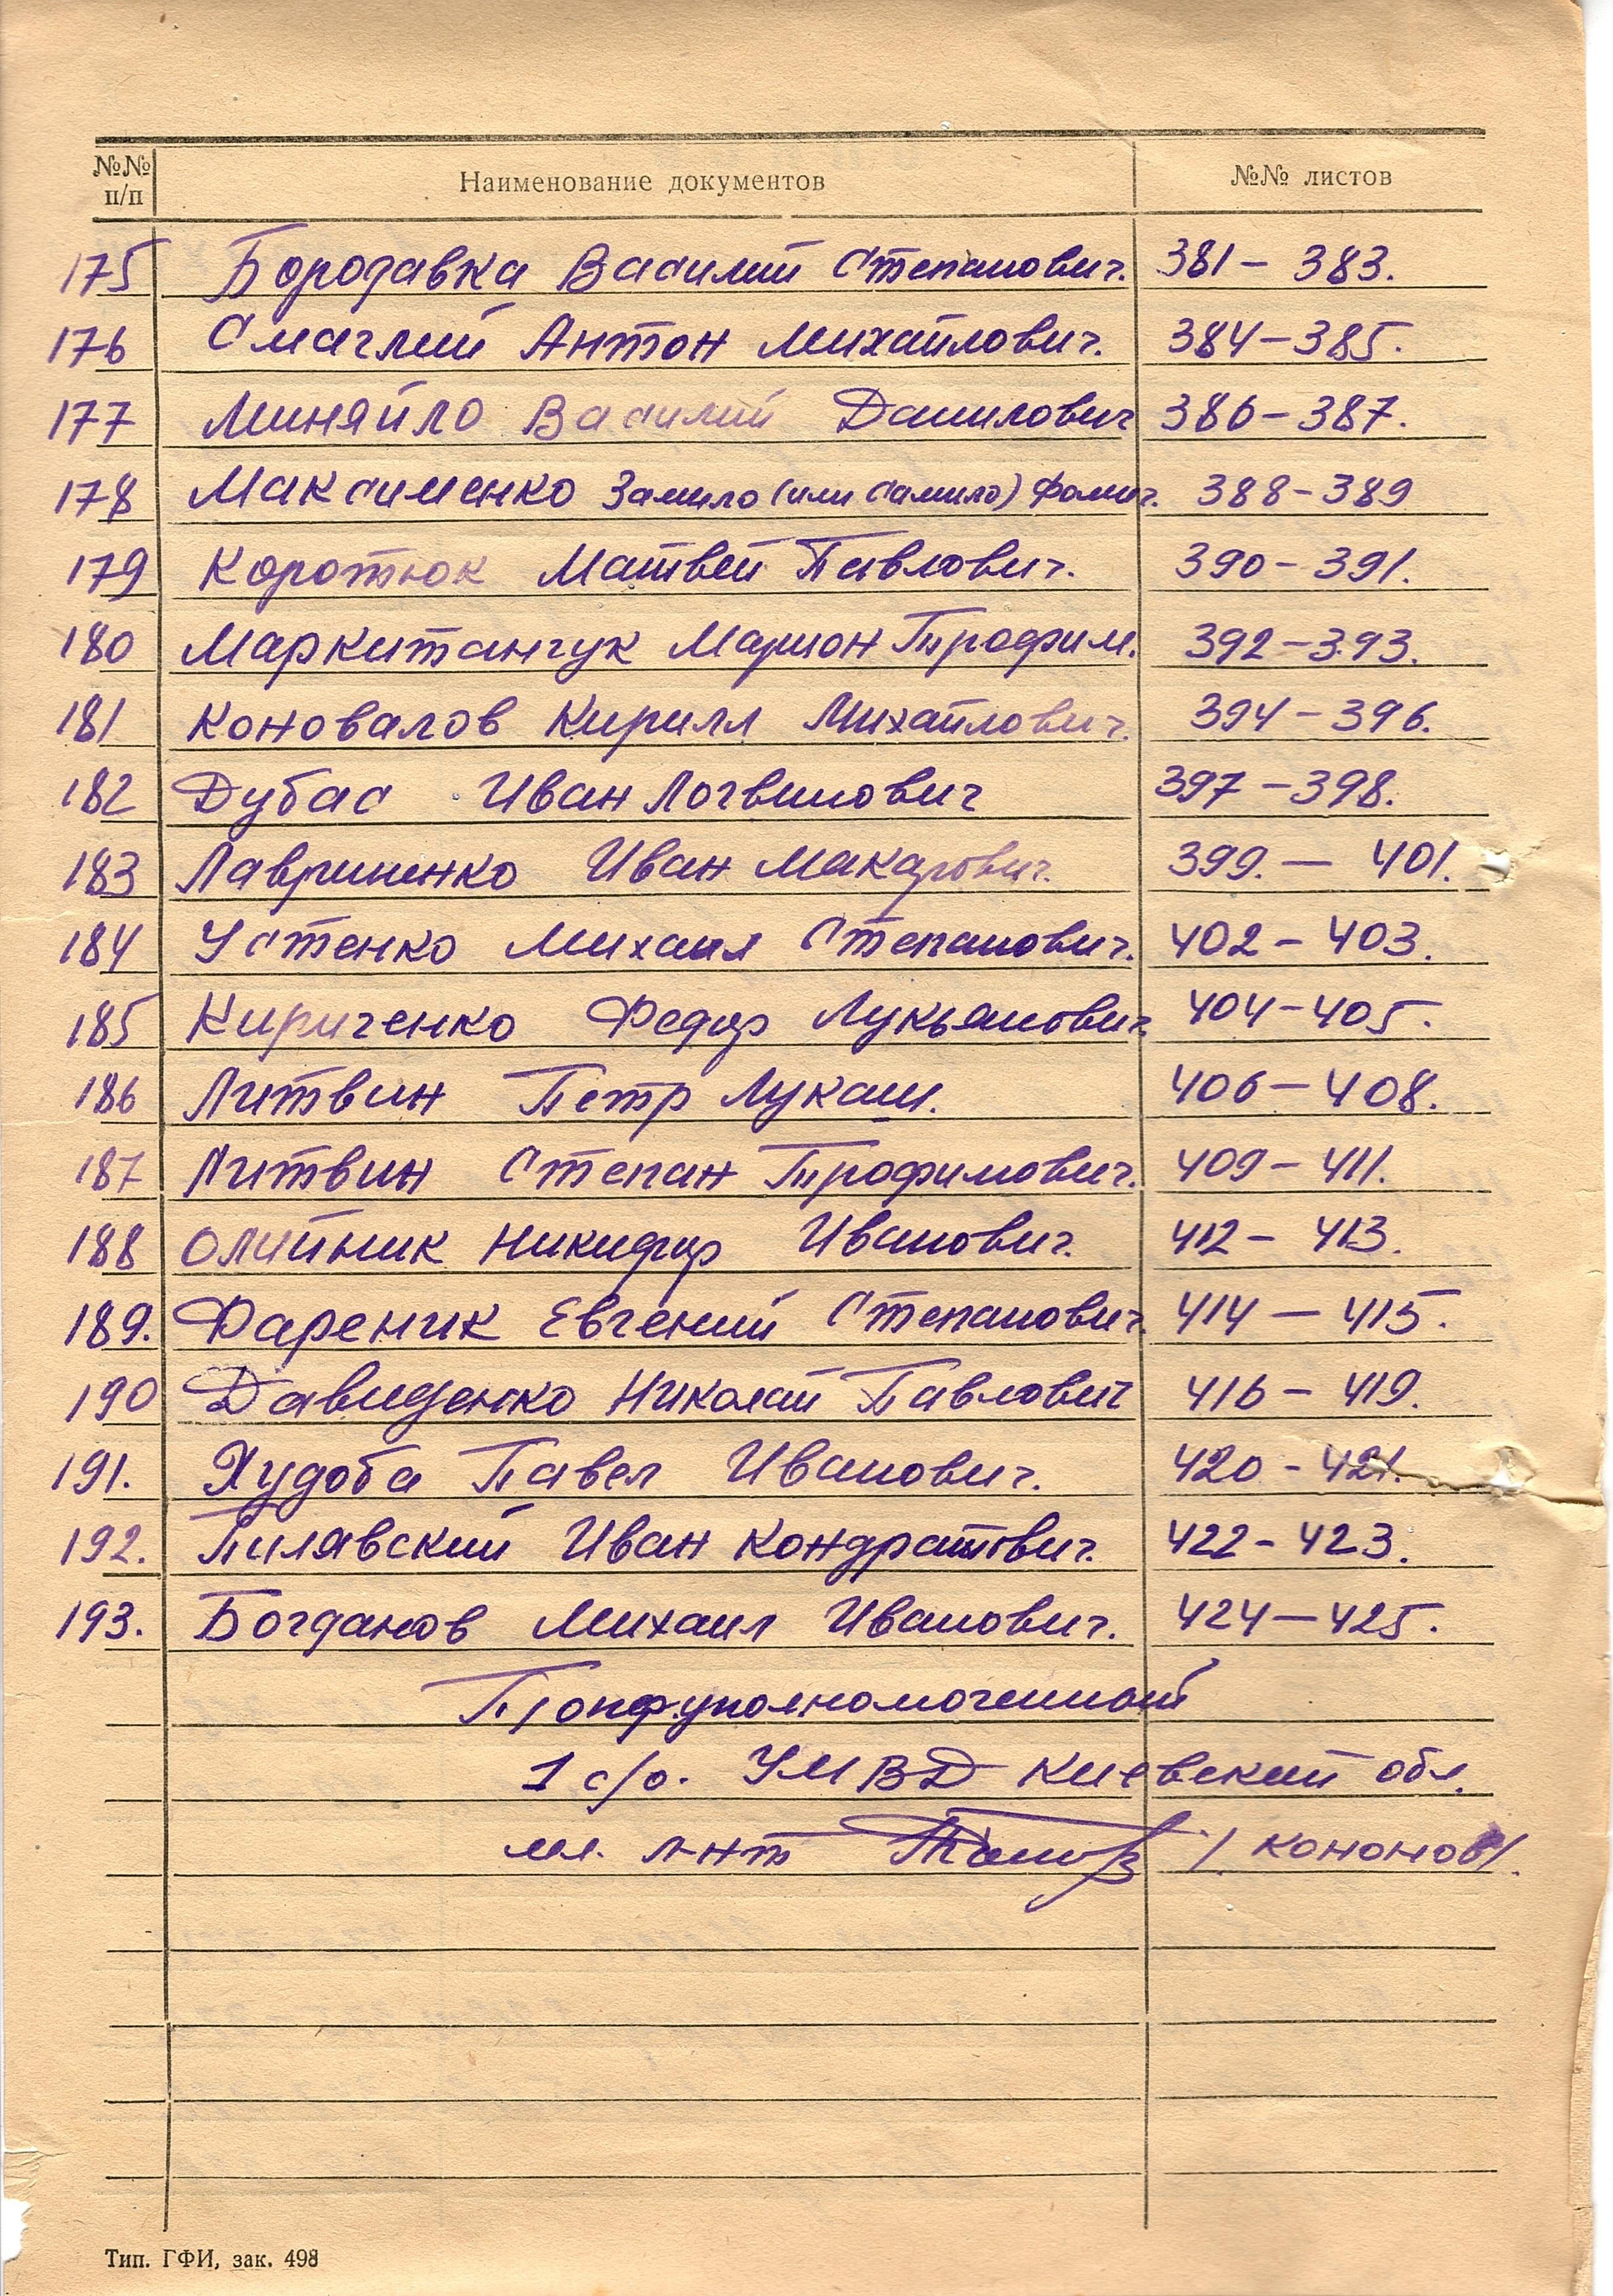 №№ п/п Наименование документов №№ листов
175 Бородавка Василий Степанович. 381 – 383.
176 Смаглий Антон Михайлович. 384 – 385.
177 Миняйло Василий Данилович 386 – 387.
178 Максименко Замило (или Самило) Фомич. 388 – 389
179 Коротюк Матвей Павлович. 390 – 391.
180 Маркитанчук Марион Трофим. 392 – 393.
181 Коновалов Кирилл Михайлович. 394 – 396.
182 Дубас Иван Логвинович 397 – 398.
183 Лавриненко Иван Макарович. 399. – 401.
184 Устенко Михаил Степанович. 402 – 403.
185 Кириченко Федор Лукьянович. 404 – 405.
186 Литвин Петр Лукаш. 406 – 408.
187 Литвин Степан Трофимович. 409 – 411.
188 Олийник Никифор Иванович. 412 – 413.
189. Фареник Евгений Степанович. 414 – 415.
190 Давиденко Николай Павлович 416 – 419.
191. Худоба Павел Иванович. 420 – 421.
192. Пилявский Иван Кондратович. 422 – 423.
193. Богданов Михаил Иванович. 424 – 425.
1 с/о. УМВД Киевский обл.
мл. л-нт / Кононов/.
Тип. ГФИ, зак. 498